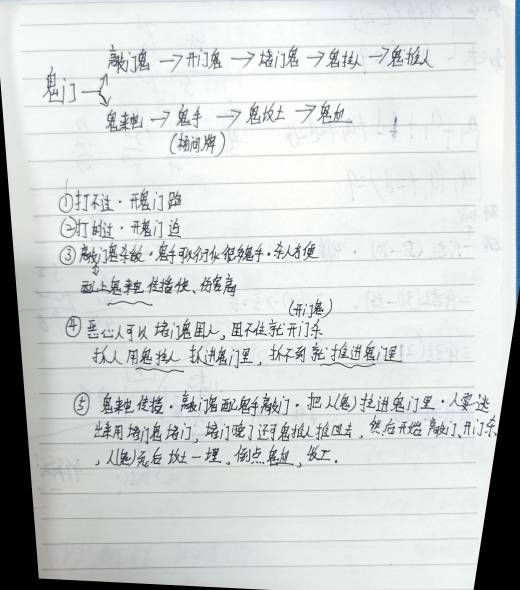 敲门鬼 → 开门鬼 → 堵门鬼 → 鬼拦人 → 鬼推人
鬼门 →
鬼来电 → 鬼手 → 鬼坟土 → 鬼血
(杨间牌)
① 打不过·开鬼门跑
② 打的过·开鬼门追
③ 敲门鬼杀敌·鬼手可以衍化很多鬼手·杀人方便
配上鬼来电传播便、伤害高
(开门鬼)
④ 恶心人可以堵门鬼困人,困不住就开门杀
抓人用鬼拦人抓进鬼门里,抓不到就推进鬼门里
⑤ 鬼来电传播·敲门鬼配鬼手敲门·把人(鬼)拉进鬼门里·人要逃
出来用堵门鬼堵门,堵门晚了还有鬼推人推回去,然后开始敲门、开门杀
,人(鬼)死后坟土一埋,倒点鬼血,收工.